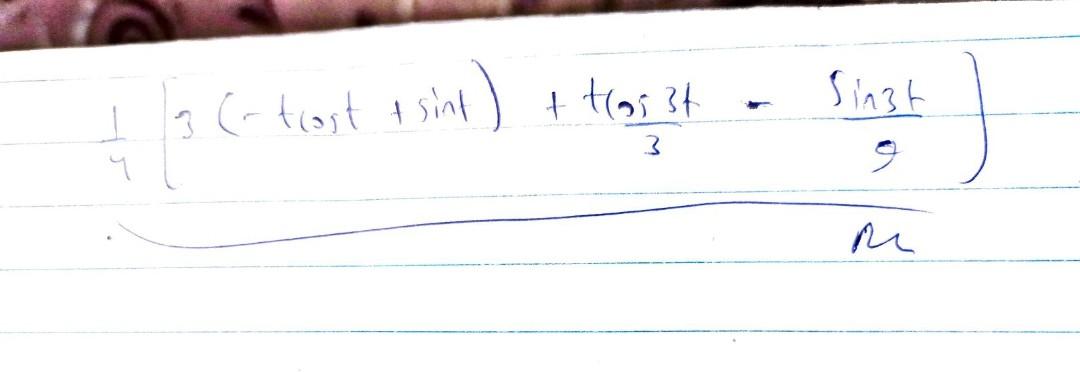 1/4 [3 (-tcost + sint) + tcos3t/3 - Sin3t/9]